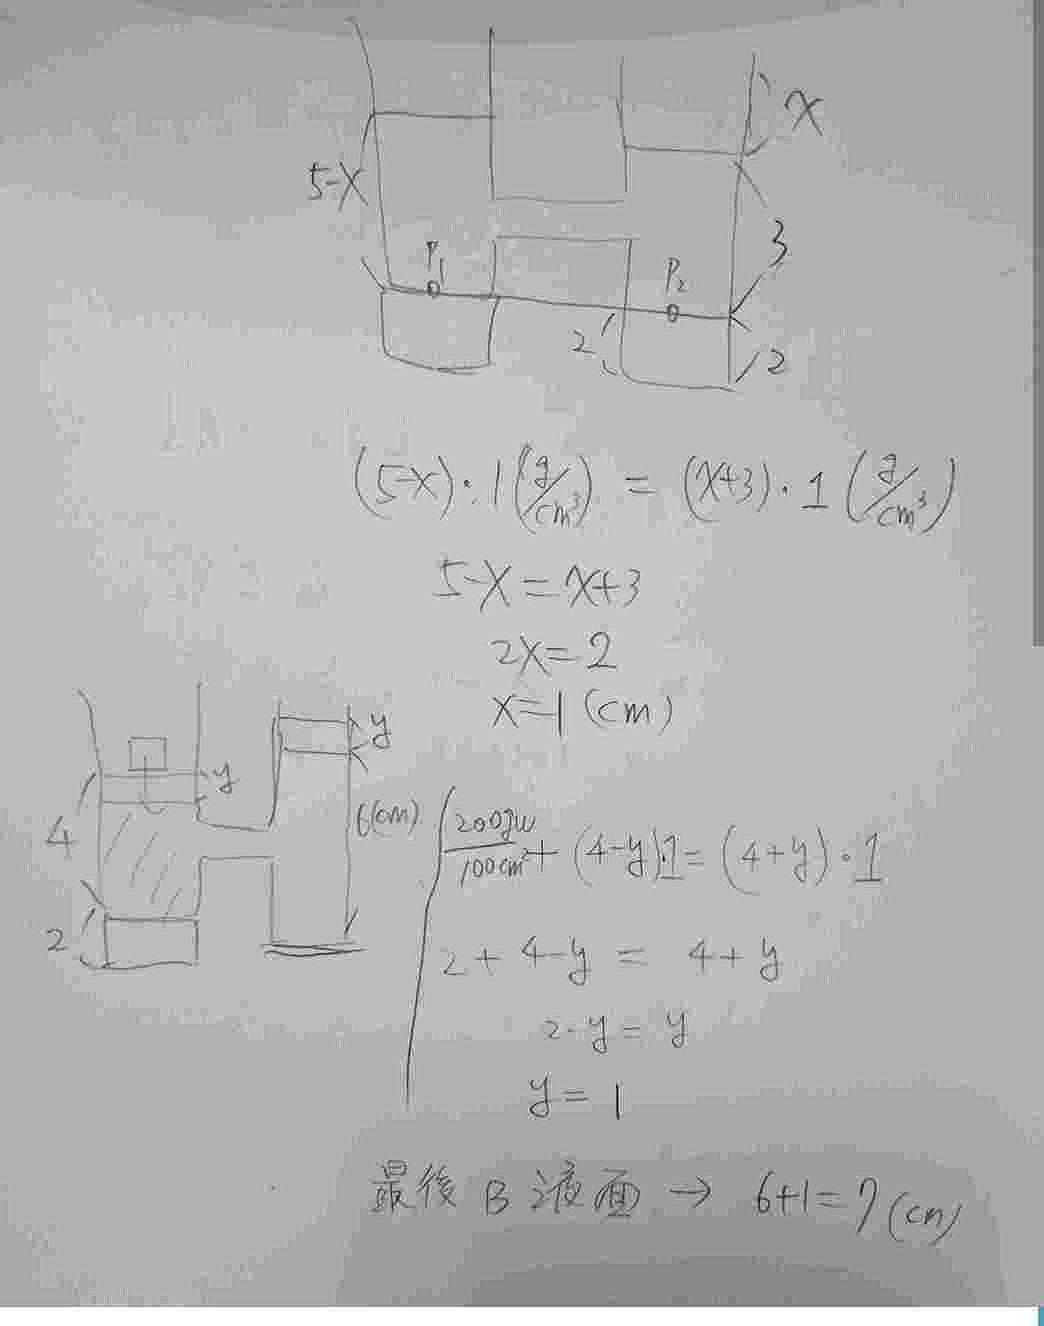 x
5-x
P1
P2
3
2
2
(5-x)·1(g/cm³) = (x+3)·1(g/cm³)
5-x=x+3
2x=2
x=1 (cm)
y
y
4
6(cm)
2
200gw/100cm² + (4-y)·1=(4+y)·1
2+4-y = 4+y
2-y=y
y=1
最後 B 液面 → 6+1=7(cm)